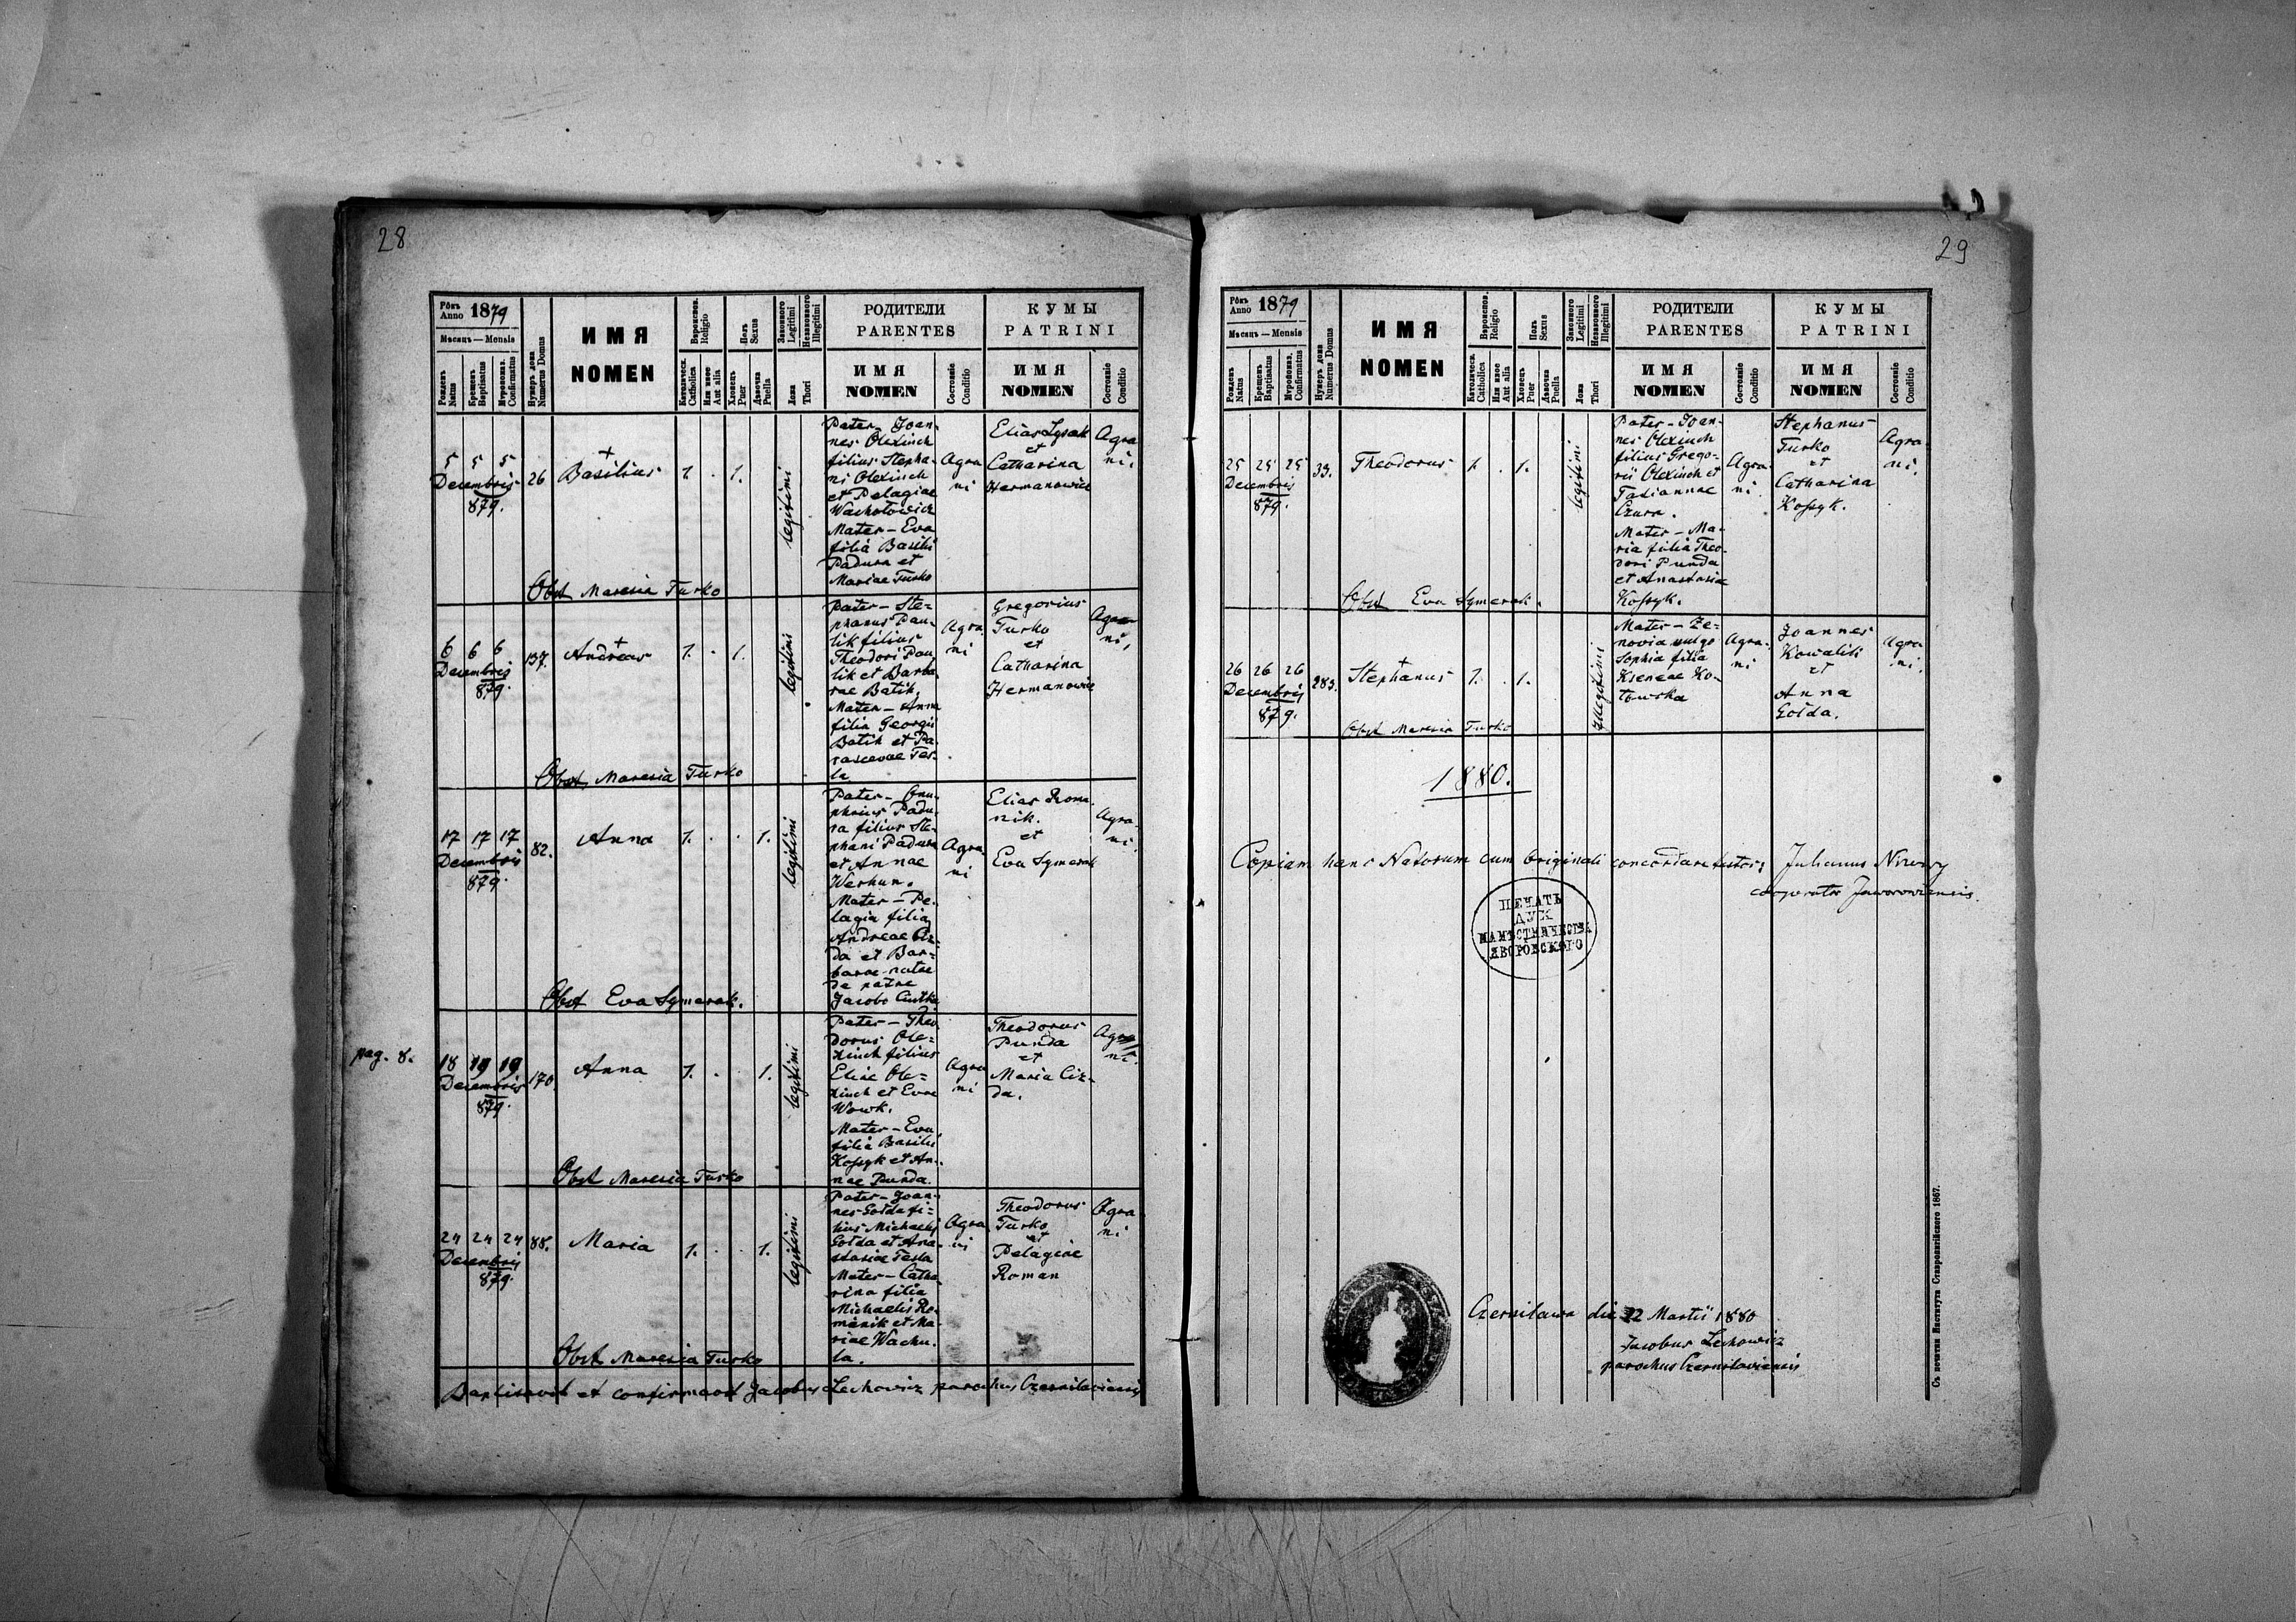 28
Рôкъ Anno 1879
Мѣсяцъ — Mensis
Рожденъ Natus
Крещенъ Baptisatus
Мѵропомаз. Confirmatus
Нумеръ дома Numerus Domus
ИМЯ
NOMEN
Вѣроиспов. Religio
Католическ. Catholica
Или иное Aut alia
Полъ Sexus
Хлопецъ Puer
Дѣвочка Puella
Законного Legitimi
Незаконного Illegitimi
Ложа Thori
РОДИТЕЛИ
PARENTES
ИМЯ
NOMEN
Состояніе Conditio
КУМЫ
PATRINI
ИМЯ
NOMEN
Состояніе Conditio
5 5 5
Decembris
879.
26
Basilius
1. . 1.
legitimi
Pater – Joan-
nes Olexiuch
filius Stepha-
ni Olexiuch
et Pelagiae
Wachotowicz
Mater – Eva
filia Basilii
Padura et
Mariae Turko
Agra
ni
Elias Lysak
et
Catharina
Hermanowicz
Agra
ni.
Obst Maresia Turko
6 6 6
Decembris
879.
137.
Andreas
1. . 1.
legitimi
Pater – Ste-
phanus Pau-
lik filius
Theodori Pau
lik et Barba
rae Batih,
Mater – Anna
filia Georgii
Batih et Pa-
rascevae Tes-
la
Agra
ni
Gregorius
Turko
et
Catharina
Hermanowicz
Agra
ni,
Obst Maresia Turko
17 17 17
Decembris
879.
82.
Anna
1. . . 1.
legitimi
Pater – Onu-
phrius Padu-
ra filius Ste-
phani Padura
et Annae
Werhun.
Mater – Pe-
lagia filia
Andreae Ciz-
da et Bar-
barae natae
de patre
Jacobo
Agra
ni
Elias Roma
nik.
et
Eva Symerak
Agra-
ni.
Obst Eva Symerak.
pag. 8.
18 19 19
Decembris
879.
170
Anna
1. . . 1.
legitimi
Pater – Theo
dorus Ole-
xiuch filius
Eliae Ole-
xiuch et Evae
Wowk.
Mater – Eva
filia Basilii
Kossyk et An-
nae Punda.
Agra
ni
Theodorus
Punda
et
Maria Ciz-
da.
Agra
ni.
Obst Maresia Turko
24 24 24
Decembris
879.
88.
Maria
1. . . 1.
legitimi
Pater – Joan-
nes Gołda fi-
lius Michaelis
Gołda et Ana-
stasiae Tesla
Mater – Catha
rina filia
Michaelis Ro-
manik et Ma-
riae Wachu-
la.
Agra
ni
Theodorus
Turko
et
Pelagiae
Roman
Agra
ni
Obst Maresia Turko
Baptisavit et confirmavit Jacobus Lechowicz parochus Czernilaviensis
29
Рôкъ Anno 1879
Мѣсяцъ — Mensis
Рожденъ Natus
Крещенъ Baptisatus
Мѵропомаз. Confirmatus
Нумеръ дома Numerus Domus
ИМЯ
NOMEN
Вѣроиспов. Religio
Католическ. Catholica
Или иное Aut alia
Полъ Sexus
Хлопецъ Puer
Дѣвочка Puella
Законного Legitimi
Незаконного Illegitimi
Ложа Thori
РОДИТЕЛИ
PARENTES
ИМЯ
NOMEN
Состояніе Conditio
КУМЫ
PATRINI
ИМЯ
NOMEN
Состояніе Conditio
25 25 25
Decembris
879.
33.
Theodorus
1. . 1.
legitimi
Pater – Joan-
nes Olexiuch
filius Grego-
rii Olexiuch et
Tatiannae
Czura.
Mater – Ma-
ria filia Theo-
dori Punda
et Anastasiae
Kossyk.
Agra-
ni.
Stephanus
Turko
et
Catharina
Kossyk.
Agra-
ni.
Obst Eva Symerak.
26 26 26
Decembris
879.
283.
Stephanus
1. . 1.
Illegitimi
Mater – Ze-
novia vulgo
Sophia filia
Kseneae Ko-
towska
Agra-
ni
Joannes
Kowalik
et
Anna
Gołda.
Agra-
ni.
Obst Maresia Turko
1880.
Copiam hanc Natorum cum originali concordare testor
Julianus
cooperator Jaworowiensis.
ПЕЧАТЬ
ДУХ
НАМѢСТНИЧЕСТВА
ЯВОРОВСКОГО
Czernilawa die 22 Martii 1880
Jacobus Lechowicz
parochus Czernilaviensis
Съ печатни Института Ставропигійского 1867.